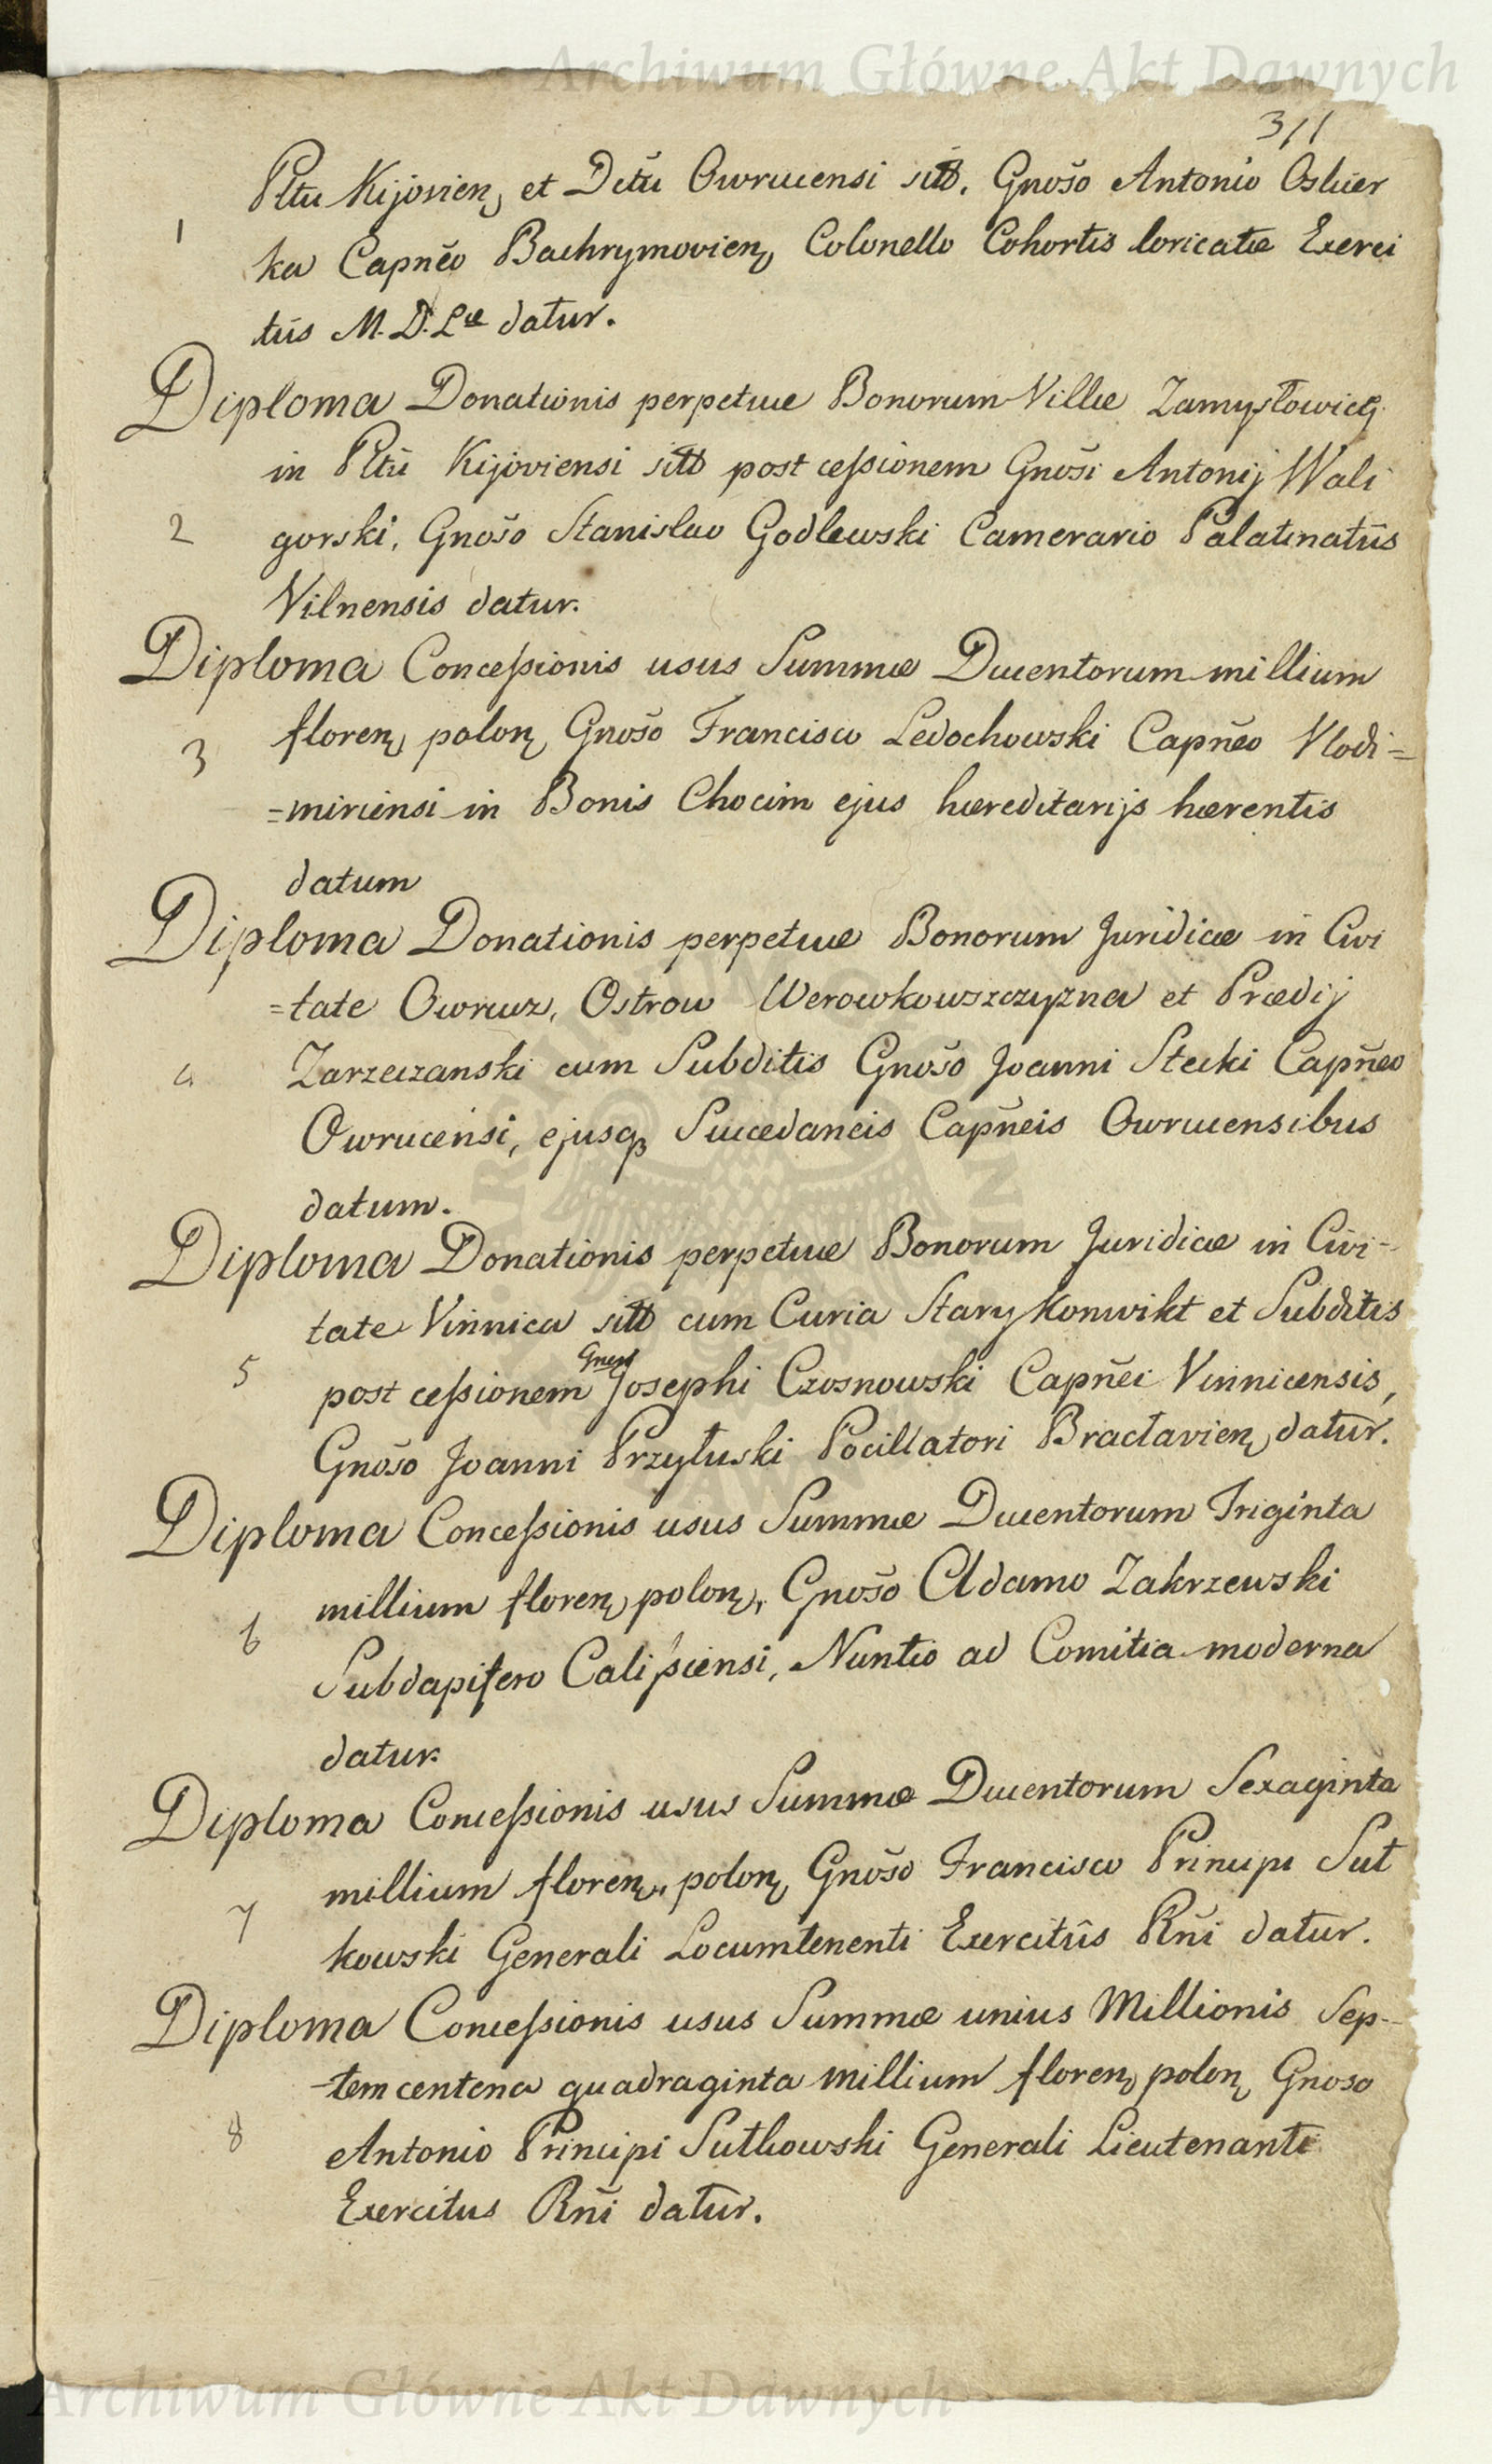 Archiwum Główne Akt Dawnych
311
Pltu Kijovien, et Dctũ Owrucensi sitt. Gnõso Antonio Oskier
1
ka Capnẽo Bachrymovien, Colonello Cohortis loricatæ Exerci
tûs M. D. Læ datur.
Diploma Donationis perpetuæ Bonorum Villæ Zamysłowicz
in Pltũ Kijoviensi sitt post ceſsionem Gnõsi Antonij Wali
2
gorski, Gnõso Stanislao Godlewski Camerario Palatinatûs
Vilnensis datur.
Diploma Conceſsionis usus Summæ Ducentorum millium
floren, polon, Gnõso Francisco Ledochowski Capnẽo Vlodi=
3
=miriensi in Bonis Chocim ejus hæreditarijs hærentis
datum
Diploma Donationis perpetuæ Bonorum Juridicæ in Civi
=tate Owrucz, Ostrow Werowkowszczyzna et Prædij
4
Zarzeczanski cum Subditis Gnõso Joanni Stecki Capnẽo
Owrucensi, ejusq, Succedaneis Capnẽis Owrucensibus
datum.
Diploma Donationis perpetuæ Bonorum Juridicæ in Civi-
tate Vinnica sitt cum Curia Stary Konwikt et Subditis
5
post ceſsionem Gnosi Josephi Czosnowski Capnẽi Vinnicensis,
Gnõso Joanni Przyłuski Pocillatori Bracłavien, datur.
Diploma Conceſsionis usus Summæ Ducentorum Triginta
millium floren, polon, Gnõso Adamo Zakrzewski
6
Subdapifero Caliſsiensi, Nuntio ad Comitia moderna
datur.
Diploma Conceſsionis usus Summæ Ducentorum Sexaginta
millium floren, polon, Gnõso Francisco Principi Suł
7
kowski Generali Locumtenenti Exercitûs Rñi datur.
Diploma Conceſsionis usus Summæ unius Millionis Sep-
-temcentena quadraginta millium floren, polon, Gnoso
8
Antonio Principi Sułkowski Generali Lieutenanti
Exercitus Rñi datur.
Archiwum Główne Akt Dawnych